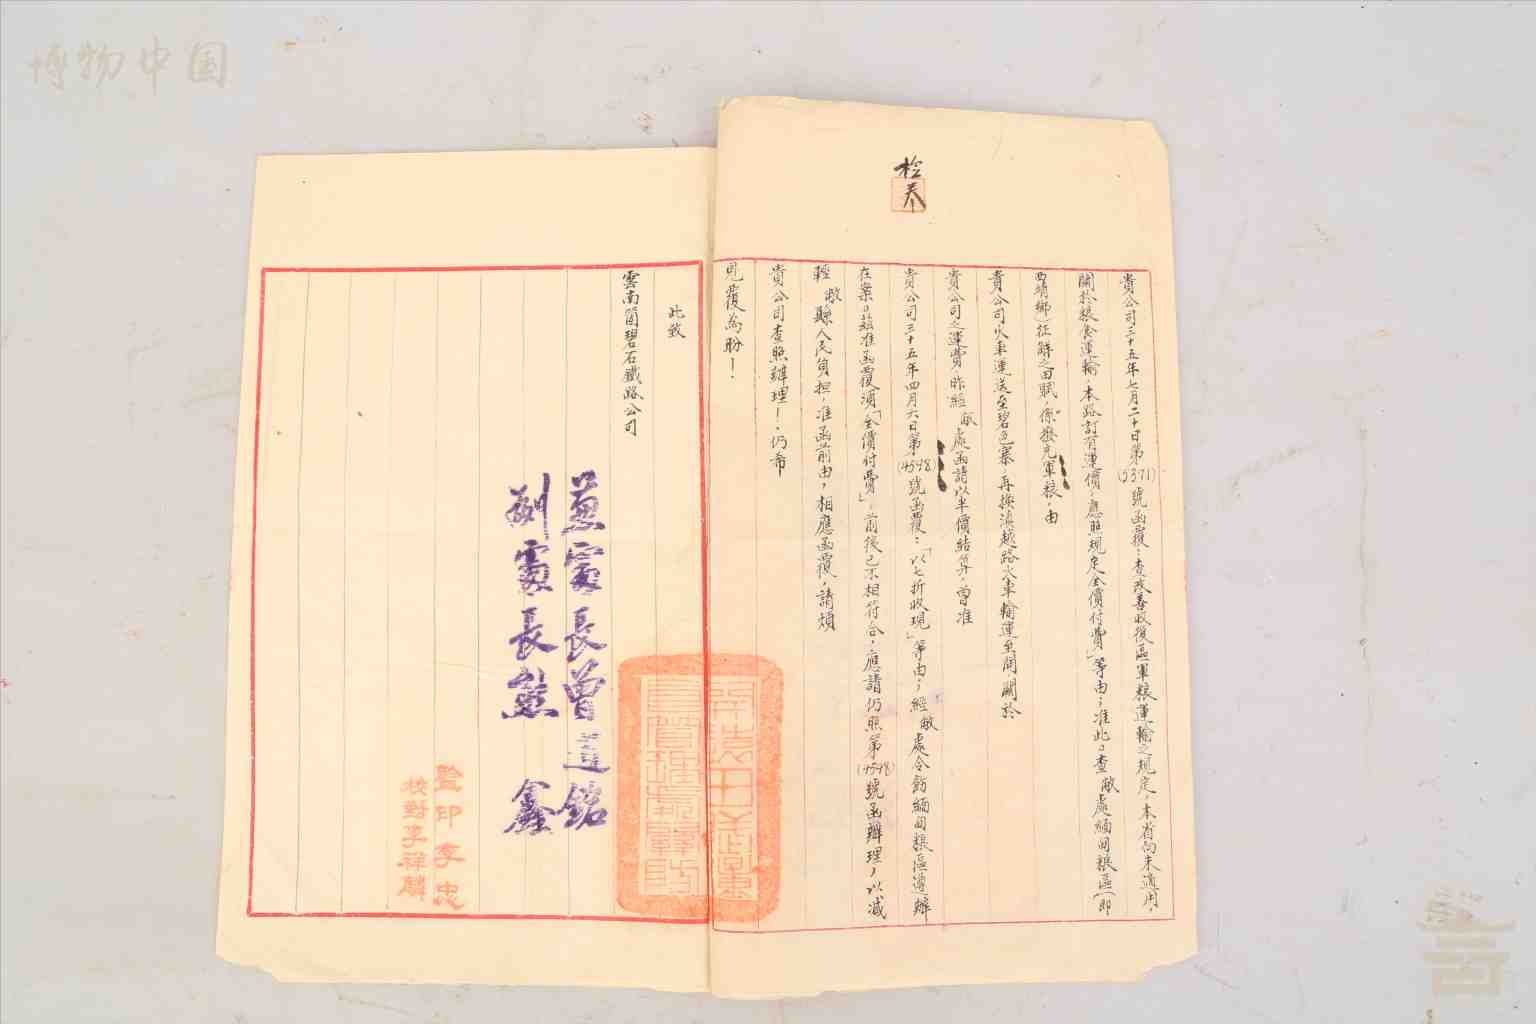 博物中国
貴公司三十五年七月二十日第(5371)號函覆：查改善收復區軍粮運輸之規定，本省尚未適用，
關於粮食運輸，本路訂有運價，應照規定全價付費」等由；准此。查敝處緬甸粮區(即
西靖鄉)征解之田賦，係撥充軍粮，由
貴公司火車運送至碧色寨，再換滇越路火車輸運至開，關於
貴公司之運費，昨經敝處函請以半價結算，曾准
貴公司三十五年四月六日第(4548)號函覆：「以七折收現」等由；經敝處令飭緬甸粮區遵辦
在案。茲准函覆須「全價付費」，前後已不相符合，應請仍照第(4548)號函辦理，以減
輕敝縣人民負担，准函前由，相應函覆，請煩
貴公司查照辦理！仍希
見覆為盼！
此致
雲南箇碧石鐵路公司
兼處長曾道銘
副處長熊鑫
監印李忠
校對李祥麟